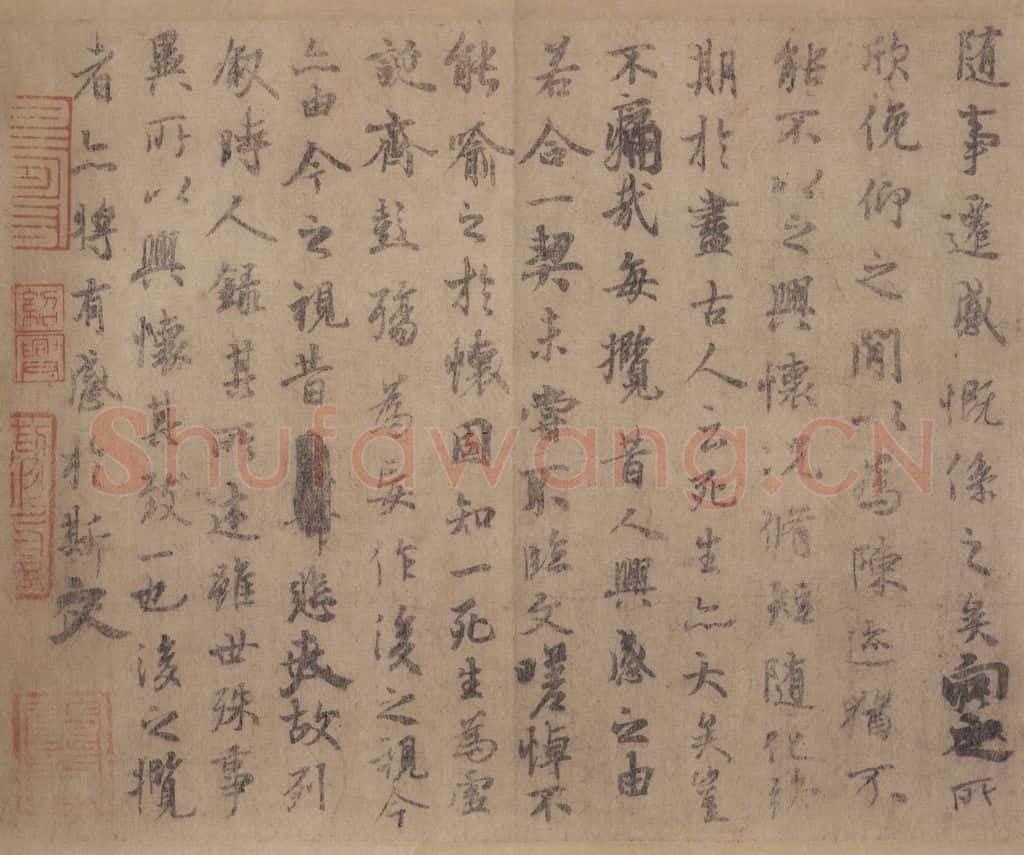 随事遷感慨係之矣向之所
欣俛仰之間以為陳迹猶不
能不以之興懷況脩短随化終
期於盡古人云死生亦大矣豈
不痛哉每攬昔人興感之由
若合一契未嘗不臨文嗟悼不
能喻之於懷固知一死生為虛
誕齊彭殤為妄作後之視今
亦由今之視昔悲夫故列
敘時人錄其所述雖世殊事
異所以興懷其致一也後之攬
者亦將有感於斯文
紹興
Shufawang.CN